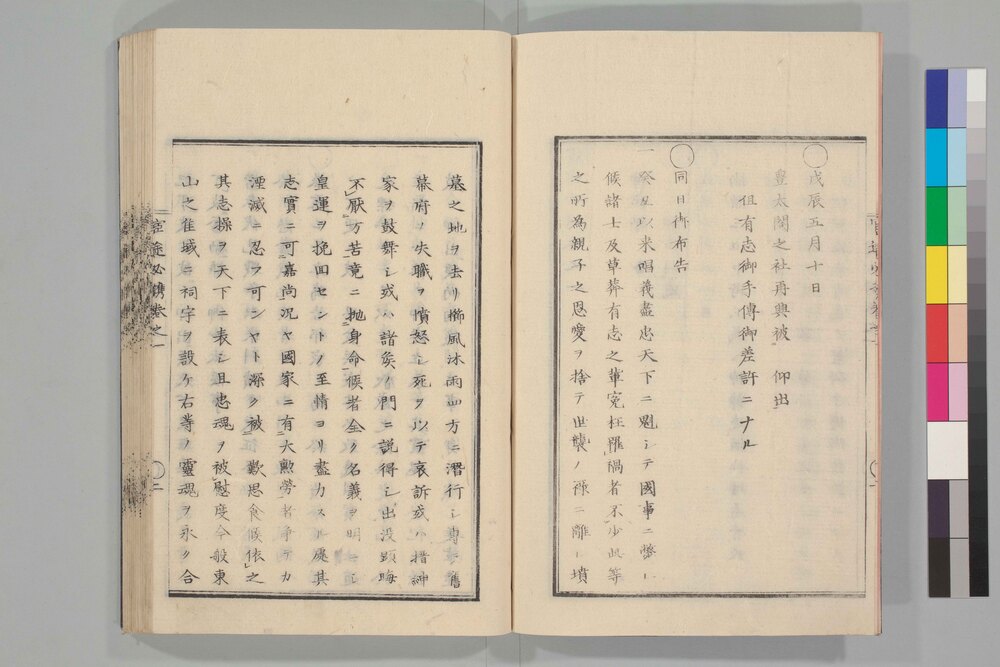 ○戊辰五月十日
豊太閤之社再興被　仰出
但有志御手傳御差許ニナル
○同日御布告
一癸丑以来唱義盡忠天下ニ魁シテ國事ニ斃レ
候諸士及草莽有志之輩寃枉罹禍者不少此等
之所為親子之恩愛ヲ捨テ世襲ノ禄ニ離レ墳
墓之地ヲ去リ櫛風沐雨四方ニ潜行シ専ラ舊
幕府ノ失職ヲ憤怒シ死ヲ以テ哀訴或ハ搢紳
家ヲ鼓舞シ或ハ諸矦ノ門ニ説得シ出没顕晦
不厭万苦竟ニ抛身命候者全ク名義ヲ明ニシ
皇運ヲ挽回セントノ至情ヨリ盡力スル處其
志實ニ可嘉尚况ヤ國家ニ有大勲勞者争テカ
湮滅ニ忍フ可ンヤト深ク被　歎思食候依之
其志操ヲ天下ニ表シ且忠魂ヲ被慰度今般東
山之佳域ニ祠宇ヲ設ケ右等ノ靈魂ヲ永ク合
官途必携巻之一
二